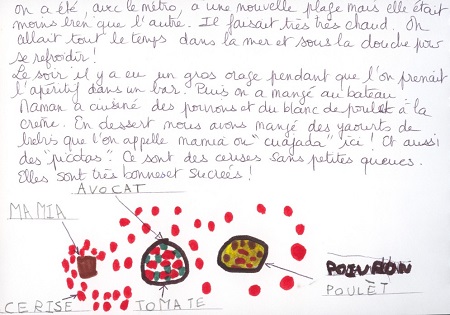 on a été, avec le métro, a une nouvelle plage mais elle était
moins bien que l'autre. Il faisait très très chaud. On
allait tout le temps dans la mer et sous la douche pour
se refroidir!
Le soir il y a eu un gros orage pendant que l'on prenait
l'apéritif dans un bar. Puis on a mangé au bateau.
Maman a cuisiné des poivrons et du blanc de poulet à la
creme. En dessert nous avons mangé des yaourts de
brebis que l'on appelle mamia ou "cuajada" ici! Et aussi
des "picotas". Ce sont des cerises sans petites queues.
Elles sont très bonnes et sucrées!
AVOCAT
MAMIA
POIVRON
POULET
CERISE
TOMATE